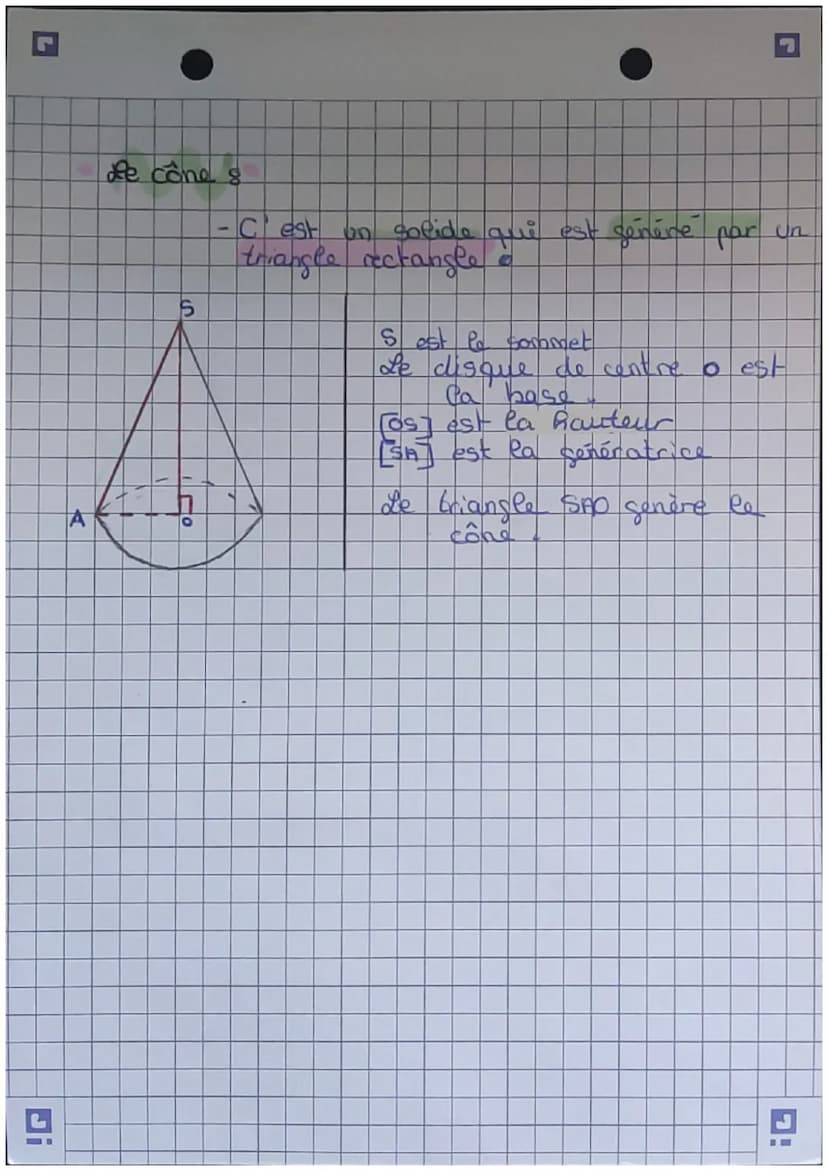 Le cône :
- C'est un solide qui est généré par un
triangle rectangle.
S
A
O
S est le sommet
Le disque de centre O est
la base.
[OS] est la hauteur
[SA] est la génératrice
Le triangle SAO génère le
cône.